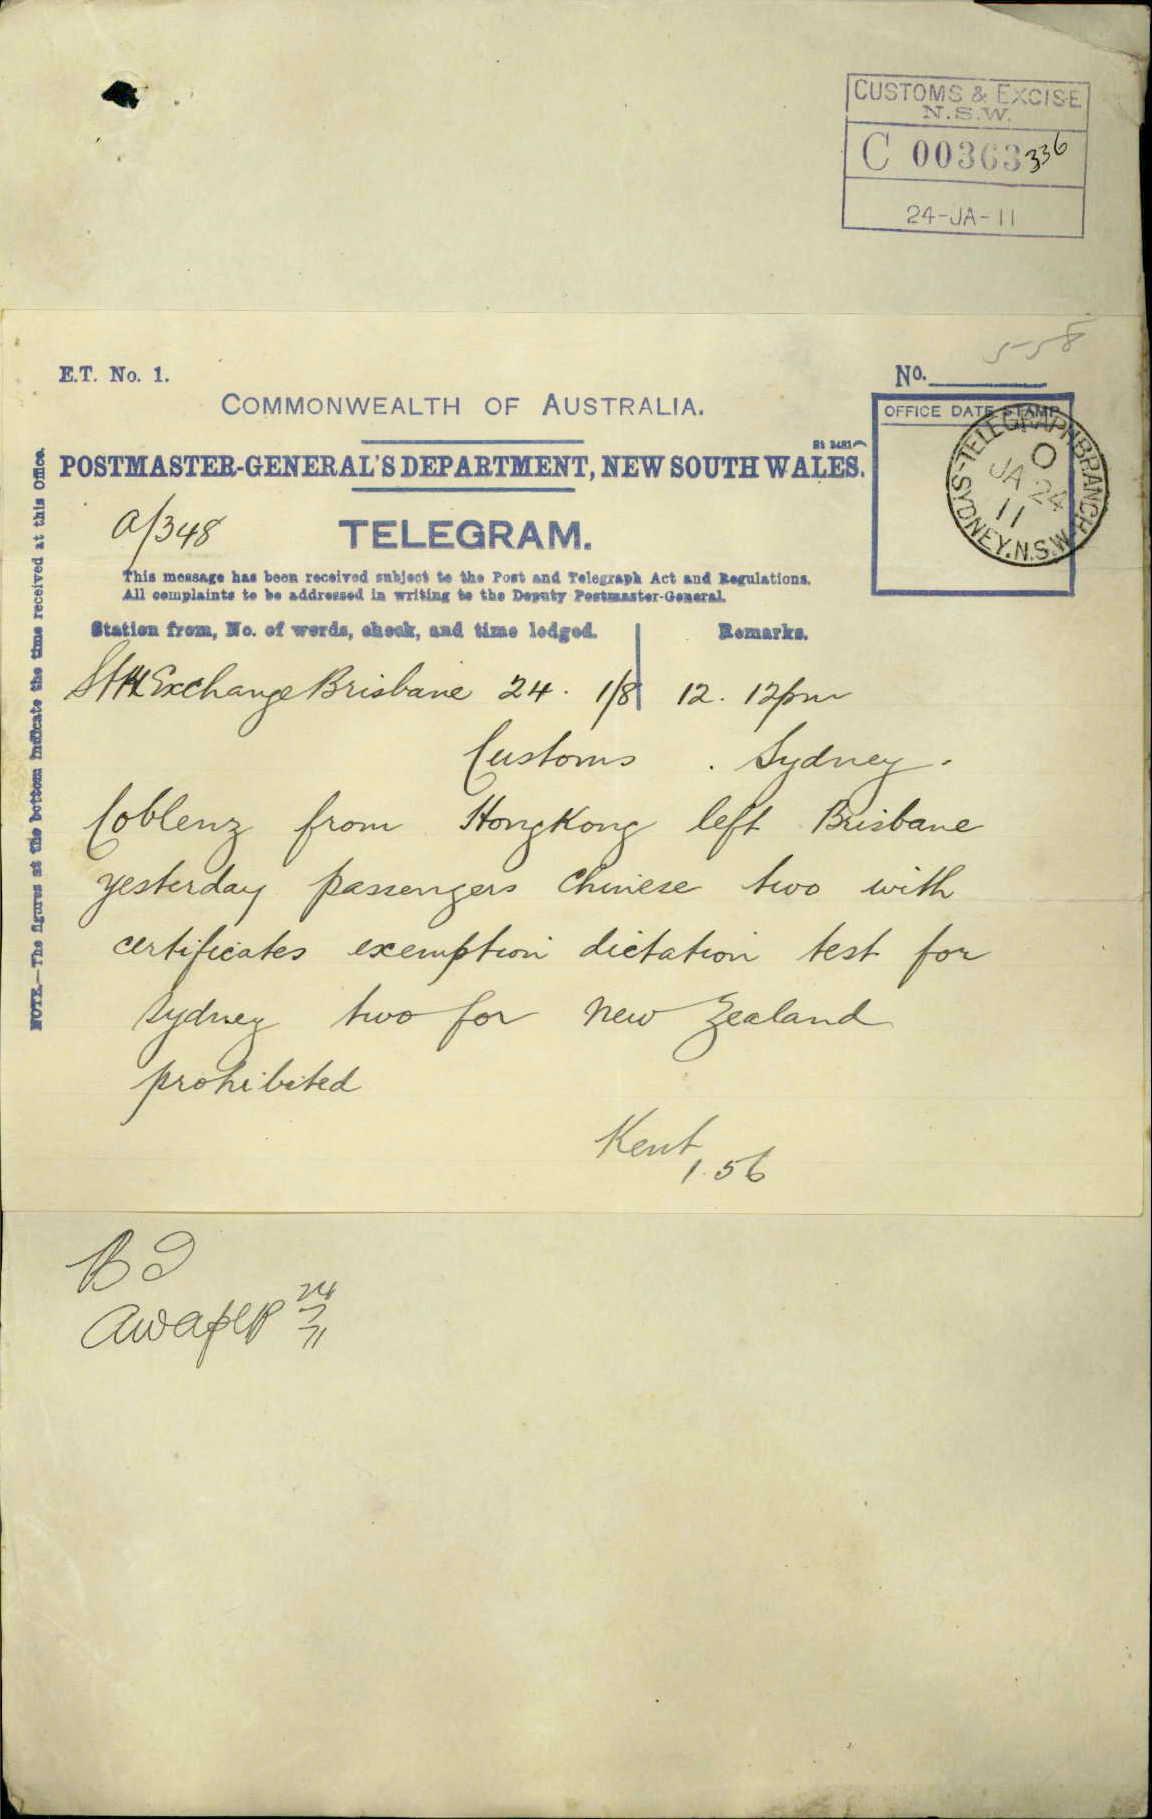 CUSTOMS & EXCISE
N.S.W.
C 00363 336
24-JA-11
558
E.T. No. 1.
No.
COMMONWEALTH OF AUSTRALIA.
OFFICE DATE STAMP
TELEGRAPH BRANCH
SYDNEY. N.S.W.
O
JA 24
11
POSTMASTER-GENERAL'S DEPARTMENT, NEW SOUTH WALES.
a/348
TELEGRAM.
This message has been received subject to the Post and Telegraph Act and Regulations.
All complaints to be addressed in writing to the Deputy Postmaster-General.
Station from, No. of words, check, and time lodged.
Remarks.
Exchange Brisbane 24. 1/8 12. 12pm
Customs . Sydney.
Coblenz from HongKong left Brisbane
yesterday passengers Chinese two with
certificates exemption dictation test for
Sydney two for New Zealand
prohibited
Kent
1.56
NOTE.—The figures at the bottom indicate the time received at this Office.
24
11